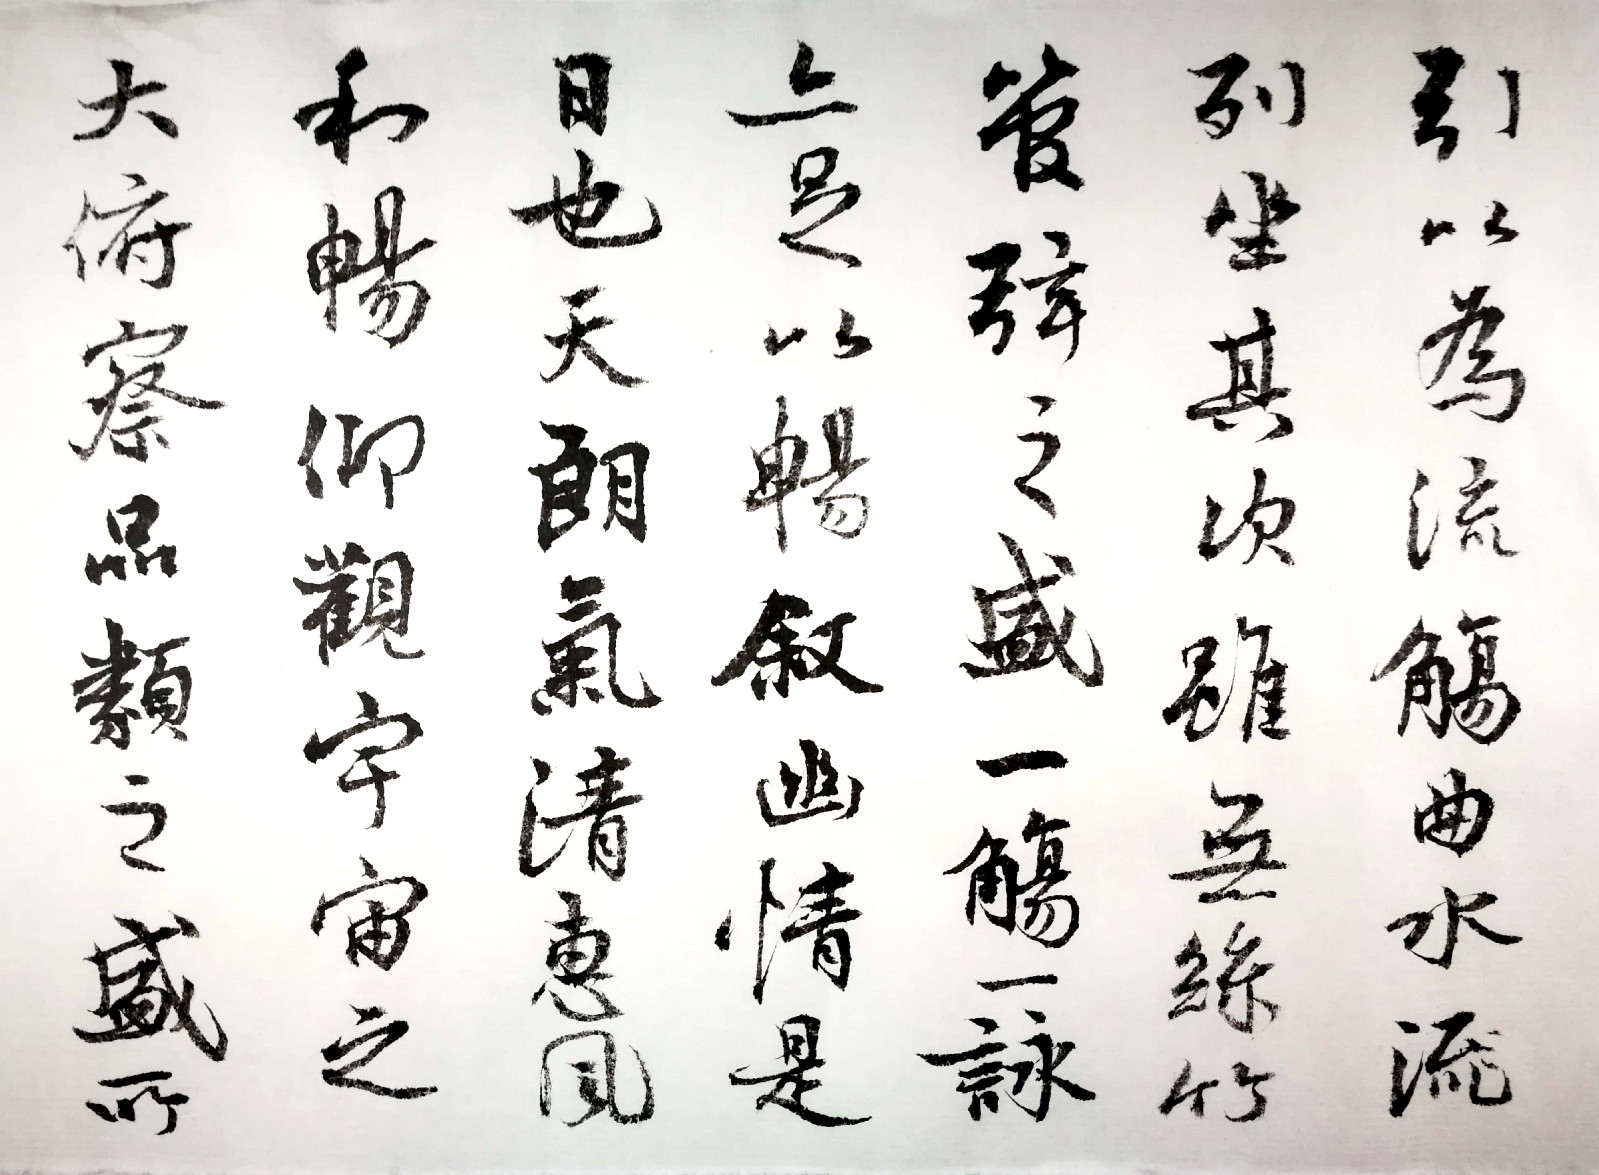 引以為流觴曲水流
列坐其次雖無絲竹
管弦之盛一觴一詠
亦足以暢敘幽情是
日也天朗氣清惠風
和暢仰觀宇宙之
大俯察品類之盛所